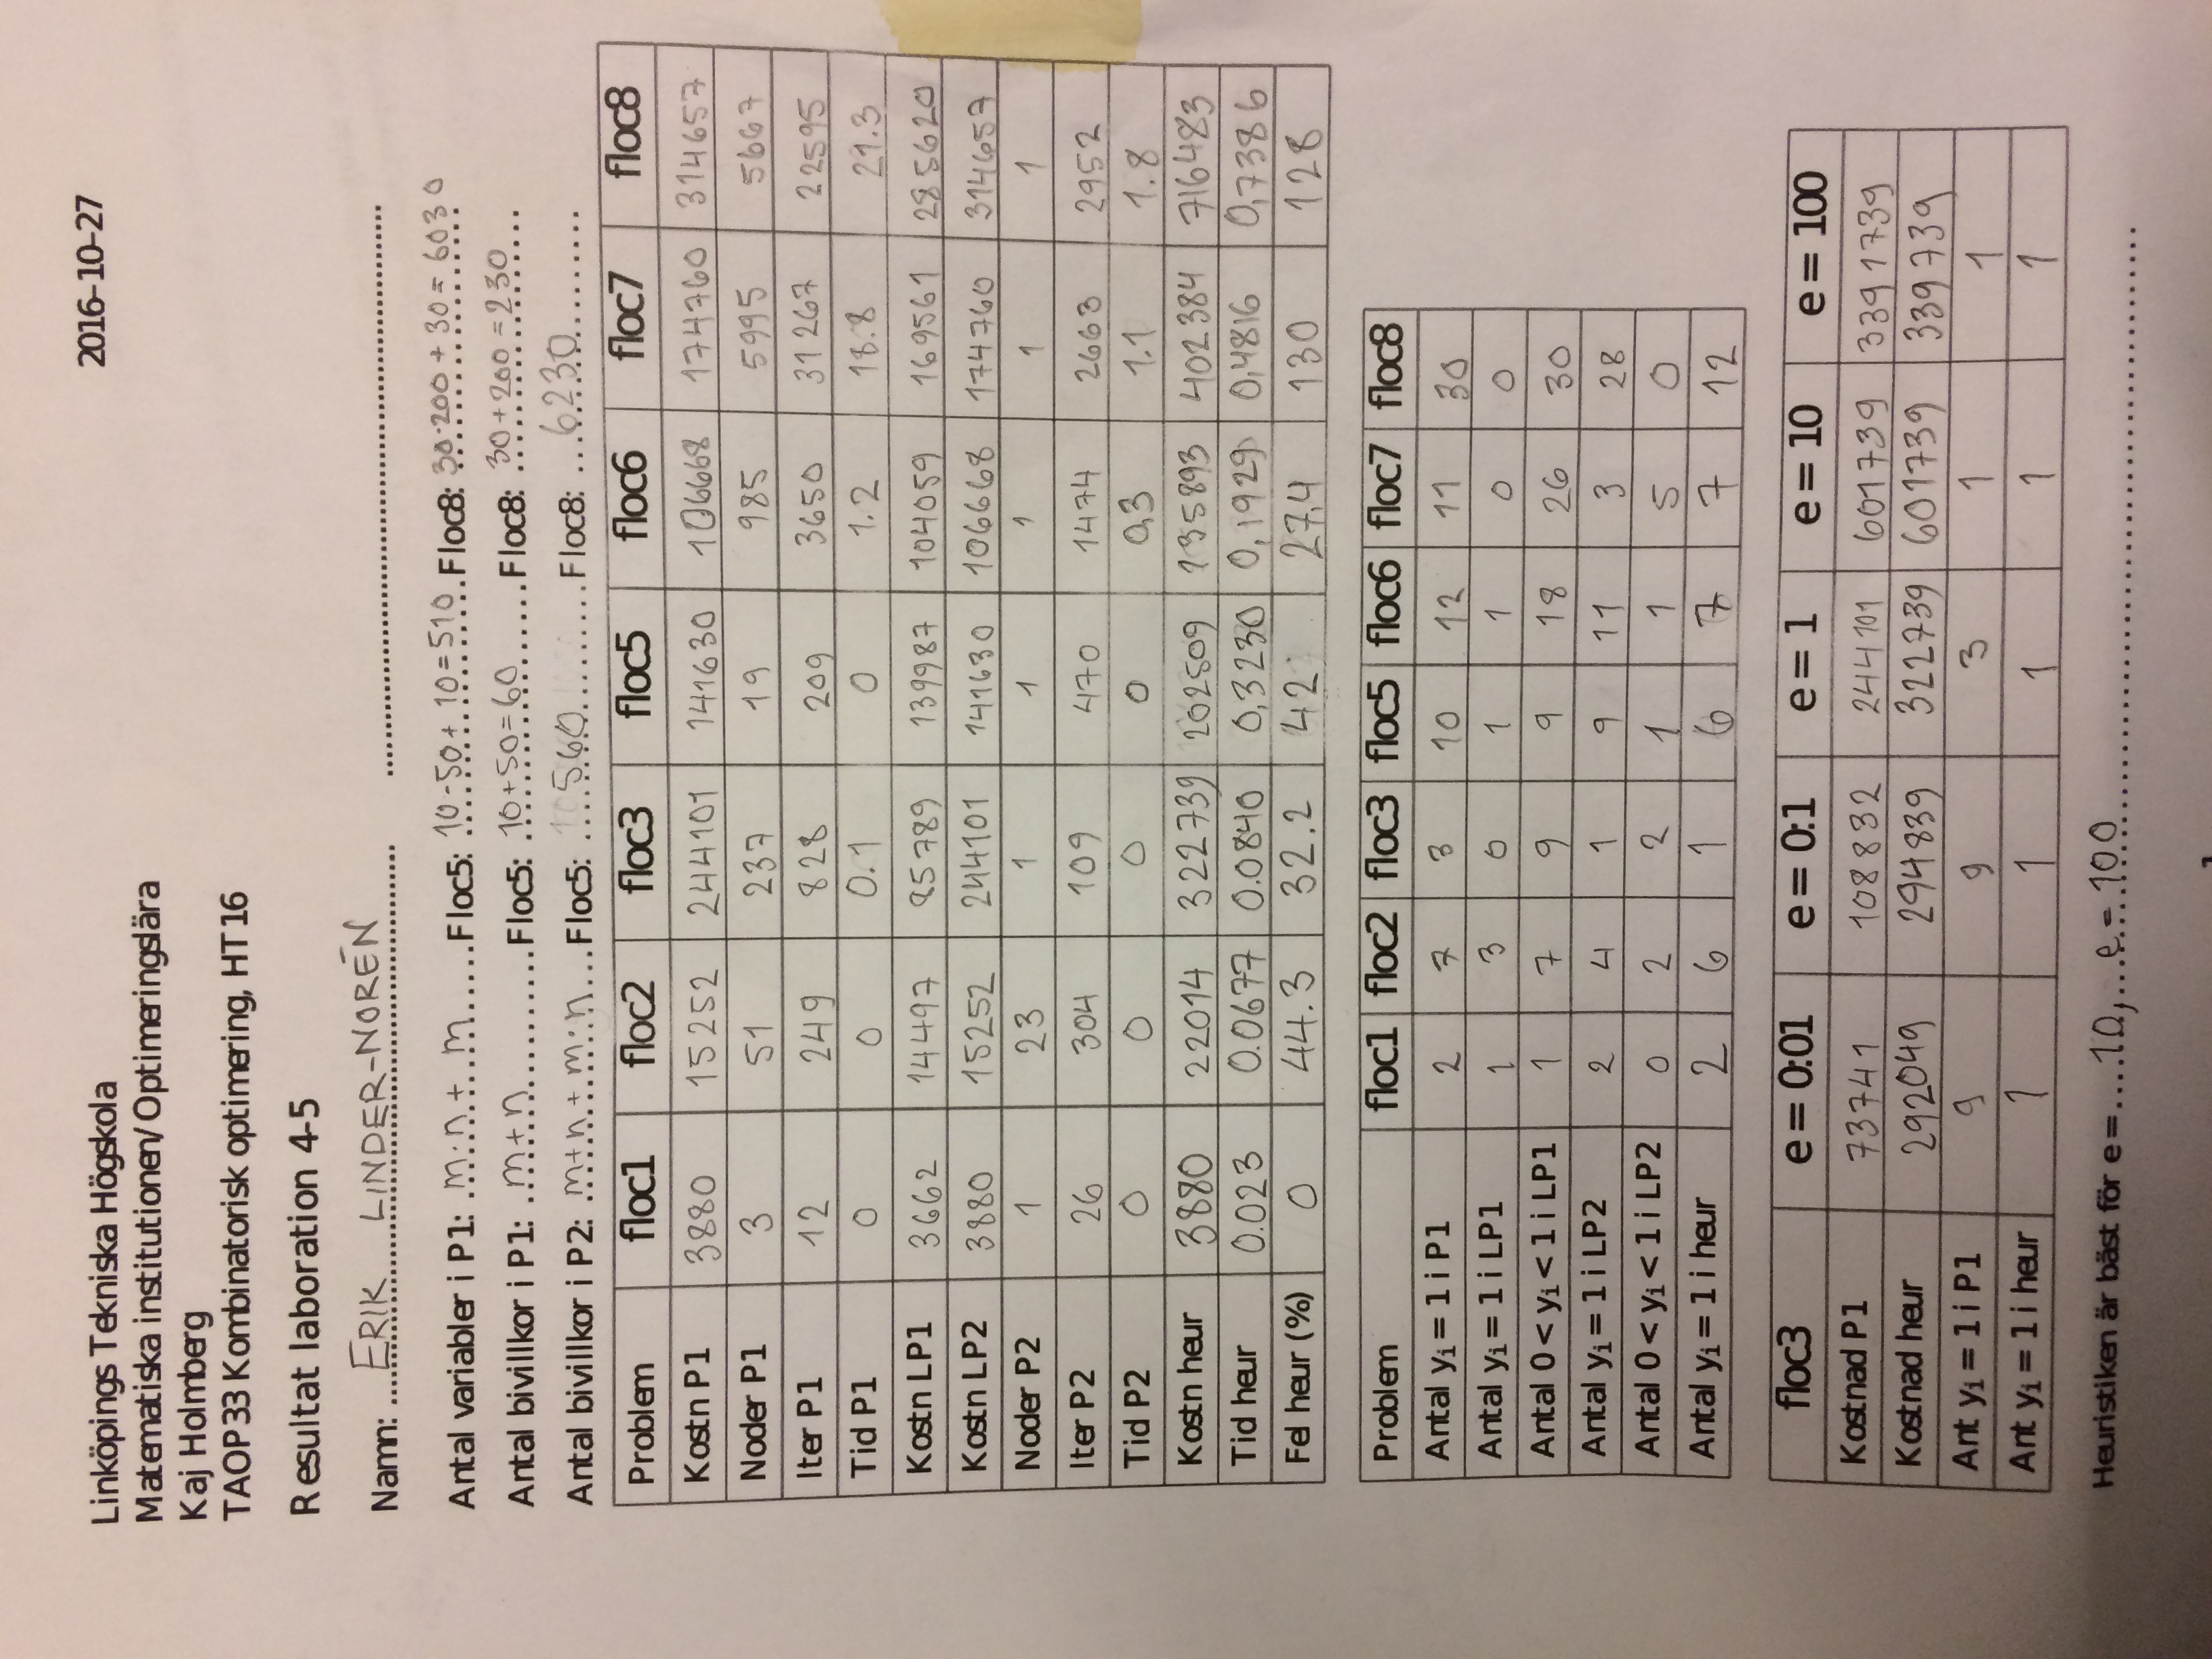 2016-10-27
Linköpings Tekniska Högskola
Matematiska institutionen/Optimeringslära
Kaj Holmberg
TAOP33 Kombinatorisk optimering, HT16
Resultat laboration 4-5
Namn: ERIK LINDER-NORÉN
Antal variabler i P1: m·n + m Floc5: 10·50+ 10=510 Floc8: 30·200 + 30 = 6030
Antal bivillkor i P1: m+n Floc5: 10+50=60 Floc8: 30+200=230
Antal bivillkor i P2: m+n+m·n Floc5: 560 Floc8: 6230
Problem floc1 floc2 floc3 floc5 floc6 floc7 floc8
Kostn P1 3880 15252 244101 141630 106668 174760 314657
Noder P1 3 51 237 19 985 5995 5667
Iter P1 12 249 828 209 3650 31267 22595
Tid P1 0 0 0.1 0 1.2 18.8 21.3
Kostn LP1 3662 14497 85789 139987 104059 169561 285620
Kostn LP2 3880 15252 244101 141630 106668 174760 314657
Noder P2 1 23 1 1 1 1 1
Iter P2 26 304 109 470 1474 2663 2952
Tid P2 0 0 0 0 0,3 1.1 1.8
Kostn heur 3880 22014 322739 202509 135893 402384 716483
Tid heur 0.023 0.0677 0.0840 0,3230 0,1929 0,4816 0,7386
Fel heur (%) 0 44.3 32.2 42 27,4 130 128
Problem floc1 floc2 floc3 floc5 floc6 floc7 floc8
Antal yi = 1 i P1 2 7 3 10 12 11 30
Antal yi = 1 i LP1 1 3 0 1 1 0 0
Antal 0 < yi < 1 i LP1 1 7 9 9 18 26 30
Antal yi = 1 i LP2 2 4 1 9 11 3 28
Antal 0 < yi < 1 i LP2 0 2 2 1 1 5 0
Antal yi = 1 i heur 2 6 1 6 7 7 12
floc3 e = 0:01 e = 0:1 e = 1 e = 10 e = 100
Kostnad P1 73741 108832 244101 601739 3391739
Kostnad heur 292049 294839 322739 601739 339739
Ant yi = 1 i P1 9 9 3 1 1
Ant yi = 1 i heur 1 1 1 1 1
Heuristiken är bäst för e = 10, e = 100
1